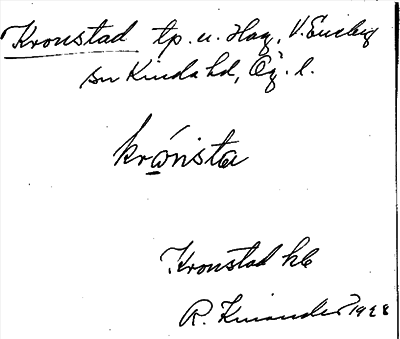 Kronstad tp. u. Hag, V. Eneby
sn Kinda hd, Ög. l.
krónista
Kronstad kb
R. Kinander 1928